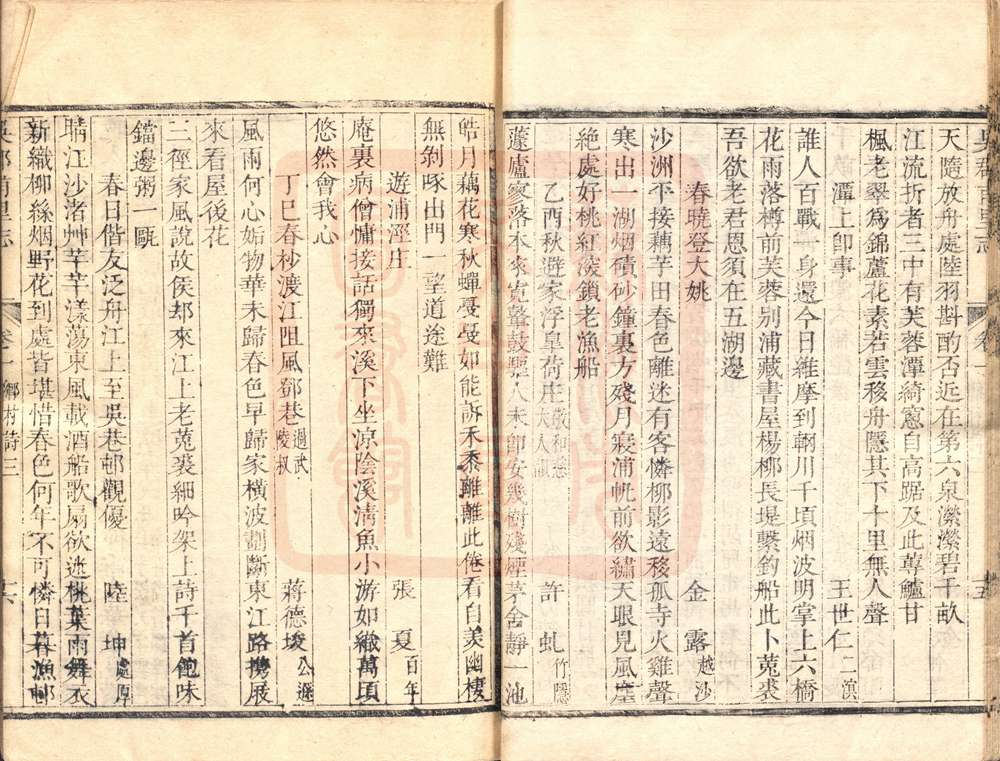 天隨放舟處陸羽斟酌否近在第六泉濴濴碧千畝
江流折者三中有芙蓉潭綺窻自高踞及此蓴鱸甘
楓老翠爲錦蘆花素若雲移舟隱其下十里無人聲
潭上卽事 王世仁 二濱
誰人百戰一身還今日維摩到輞川千頃烟波明掌上六橋
花雨落樽前芙蓉別浦藏書屋楊柳長堤繫釣船此卜菟裘
吾欲老君恩須在五湖邊
春曉登大姚 金露 越沙
沙洲平接藕芋田春色離迷有客憐柳影遠移孤寺火雞聲
寒出一湖烟積砂鐘裏方殘月寢浦帆前欲繡天眼見風塵
絶處好桃紅淺鎖老漁船
乙酉秋避家浮皇荷庄 許虬 竹隱
蘧廬家落本來寛鼙鼓驅人未卽安幾樹殘煙茅舍靜一池
皓月藕花寒秋蟬戞戞如能訴禾黍離離此倦看自羨幽棲
無剝啄出門一望道途難
遊浦涇庄 張夏 百年
庵裏病僧慵接話獨來溪下坐凉陰溪淸魚小游如織萬頃
悠然會我心
丁巳春杪渡江阻風鄧巷 過武陵叔 蔣德埈 公遜
風雨何心妬物華未歸春色早歸家橫波劃斷東江路攜展
來看屋後花
三徑家風說故侯却來江上老菟裘細吟架上詩千首飽味
鐺邊粥一甌
春日偕友泛舟江上至吳巷邨觀優 陸坤 處厚
晴江沙渚艸芊芊漾蕩東風載酒船歌扇欲迷桃葉雨舞衣
新織柳絲烟野花到處皆堪惜春色何年不可憐日暮漁邨
卷一 鄉村詩三